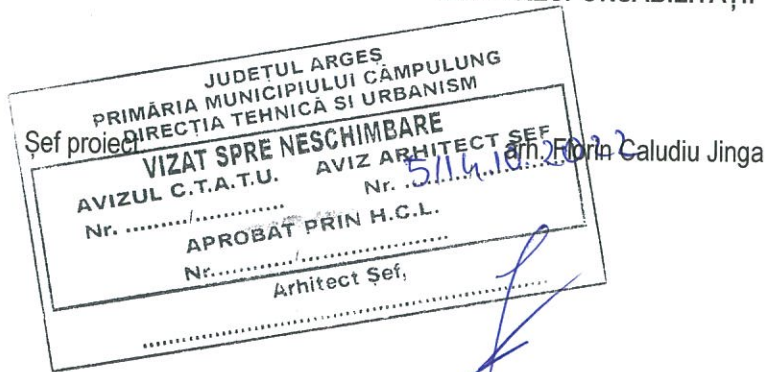 JUDEȚUL ARGEȘ
PRIMĂRIA MUNICIPIULUI CÂMPULUNG
DIRECȚIA TEHNICĂ SI URBANISM
Șef proiect:
arh. Florin Caludiu Jinga
VIZAT SPRE NESCHIMBARE
AVIZUL C.T.A.T.U. AVIZ ARHITECT ȘEF
Nr. ......../............. Nr. 5/14.10.2022
APROBAT PRIN H.C.L.
Nr............/......................
Arhitect Șef,